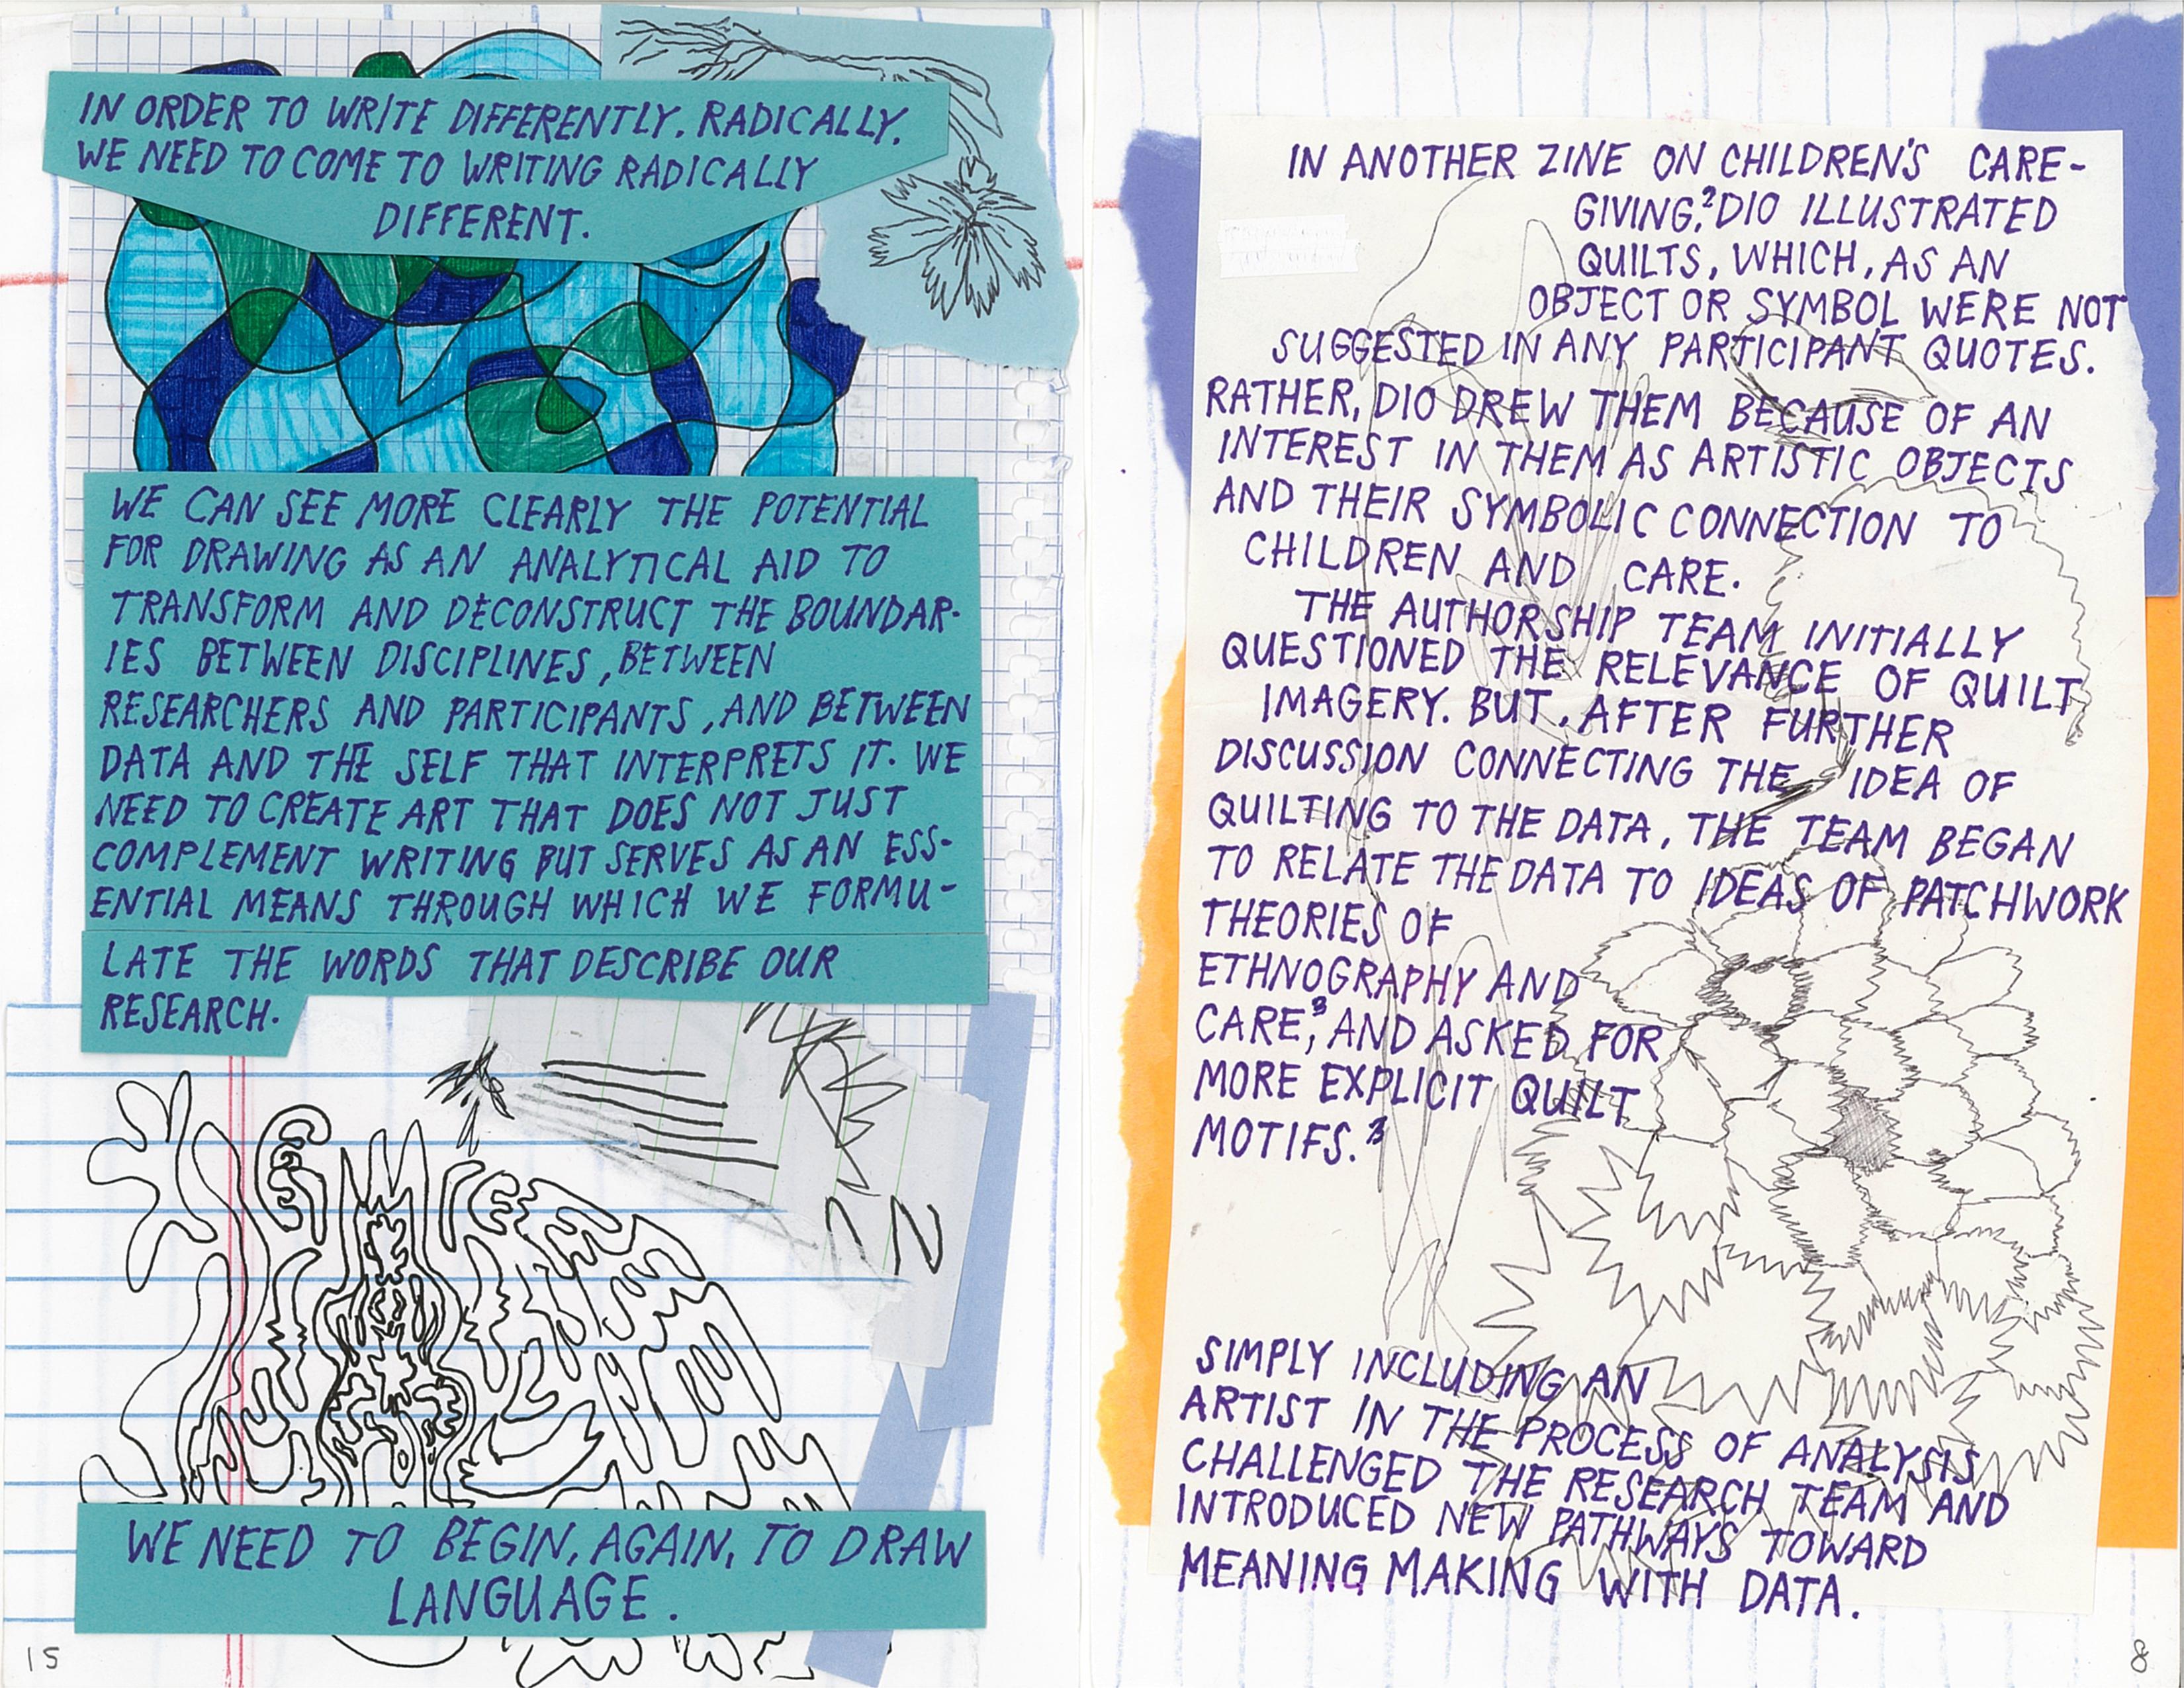 IN ORDER TO WRITE DIFFERENTLY. RADICALLY.
WE NEED TO COME TO WRITING RADICALLY
DIFFERENT.
WE CAN SEE MORE CLEARLY THE POTENTIAL
FOR DRAWING AS AN ANALYTICAL AID TO
TRANSFORM AND DECONSTRUCT THE BOUNDAR-
IES BETWEEN DISCIPLINES, BETWEEN
RESEARCHERS AND PARTICIPANTS, AND BETWEEN
DATA AND THE SELF THAT INTERPRETS IT. WE
NEED TO CREATE ART THAT DOES NOT JUST
COMPLEMENT WRITING BUT SERVES AS AN ESS-
ENTIAL MEANS THROUGH WHICH WE FORMU-
LATE THE WORDS THAT DESCRIBE OUR
RESEARCH.
WE NEED TO BEGIN, AGAIN, TO DRAW
LANGUAGE.
15
IN ANOTHER ZINE ON CHILDREN'S CARE-
GIVING,² DIO ILLUSTRATED
QUILTS, WHICH, AS AN
OBJECT OR SYMBOL WERE NOT
SUGGESTED IN ANY PARTICIPANT QUOTES.
RATHER, DIO DREW THEM BECAUSE OF AN
INTEREST IN THEM AS ARTISTIC OBJECTS
AND THEIR SYMBOLIC CONNECTION TO
CHILDREN AND CARE.
THE AUTHORSHIP TEAM INITIALLY
QUESTIONED THE RELEVANCE OF QUILT
IMAGERY. BUT, AFTER FURTHER
DISCUSSION CONNECTING THE IDEA OF
QUILTING TO THE DATA, THE TEAM BEGAN
TO RELATE THE DATA TO IDEAS OF PATCHWORK
THEORIES OF
ETHNOGRAPHY AND
CARE,³ AND ASKED FOR
MORE EXPLICIT QUILT
MOTIFS.³
SIMPLY INCLUDING AN
ARTIST IN THE PROCESS OF ANALYSIS
CHALLENGED THE RESEARCH TEAM AND
INTRODUCED NEW PATHWAYS TOWARD
MEANING MAKING WITH DATA.
8